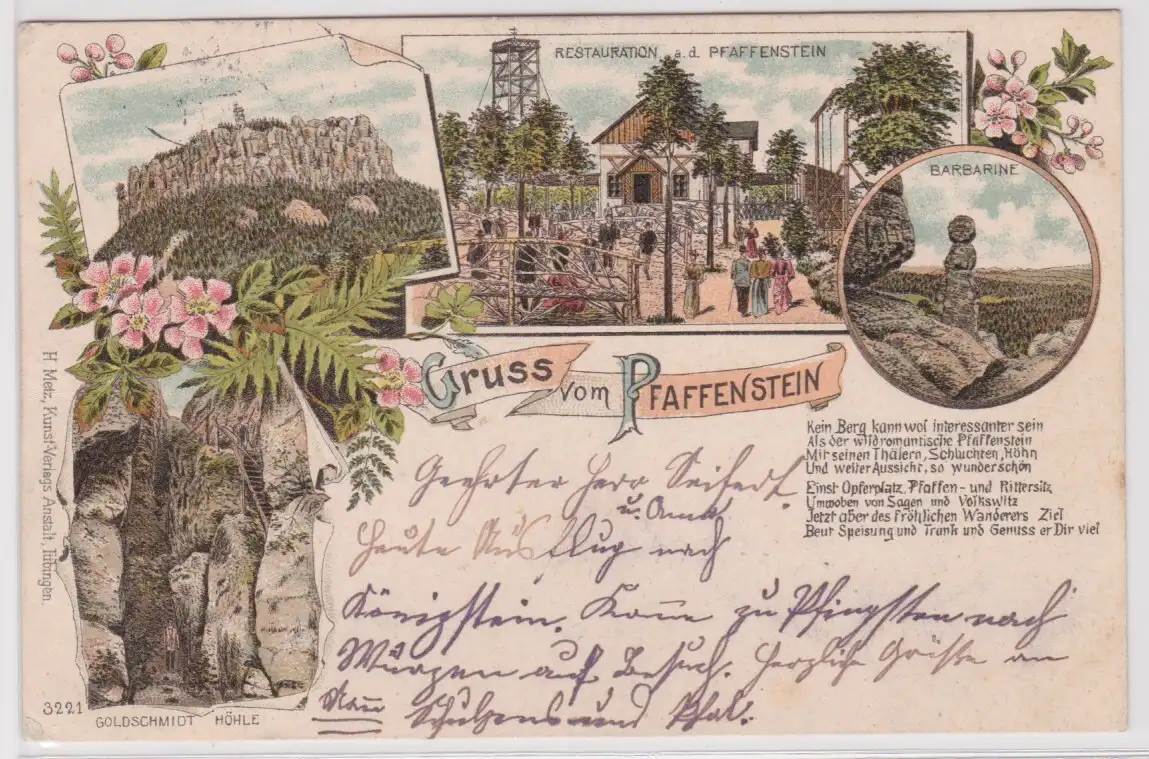 RESTAURATION a.d. PFAFFENSTEIN
BARBARINE
Gruss vom Pfaffenstein
Kein Berg kann wol interessanter sein
Als der wildromantische Pfaffenstein
Mit seinen Thälern, Schluchten, Höhn
Und weiter Aussicht, so wunderschön
Einst Opferplatz, Pfaffen- und Rittersitz
Umwoben von Sagen und Volkswitz
Jetzt aber des fröhlichen Wanderers Ziel
Beut Speisung und Trank und Genuss er Dir viel
Geehrter Herr Seifert
u.
Heute Ausflug nach
Königstein. Kome zu Pfingsten nach
Wurzen auf Besuch. Herzliche Grüße an
Schulzens und
H. Metz, Kunst-Verlags Anstalt, Tübingen.
3221
GOLDSCHMIDT HÖHLE